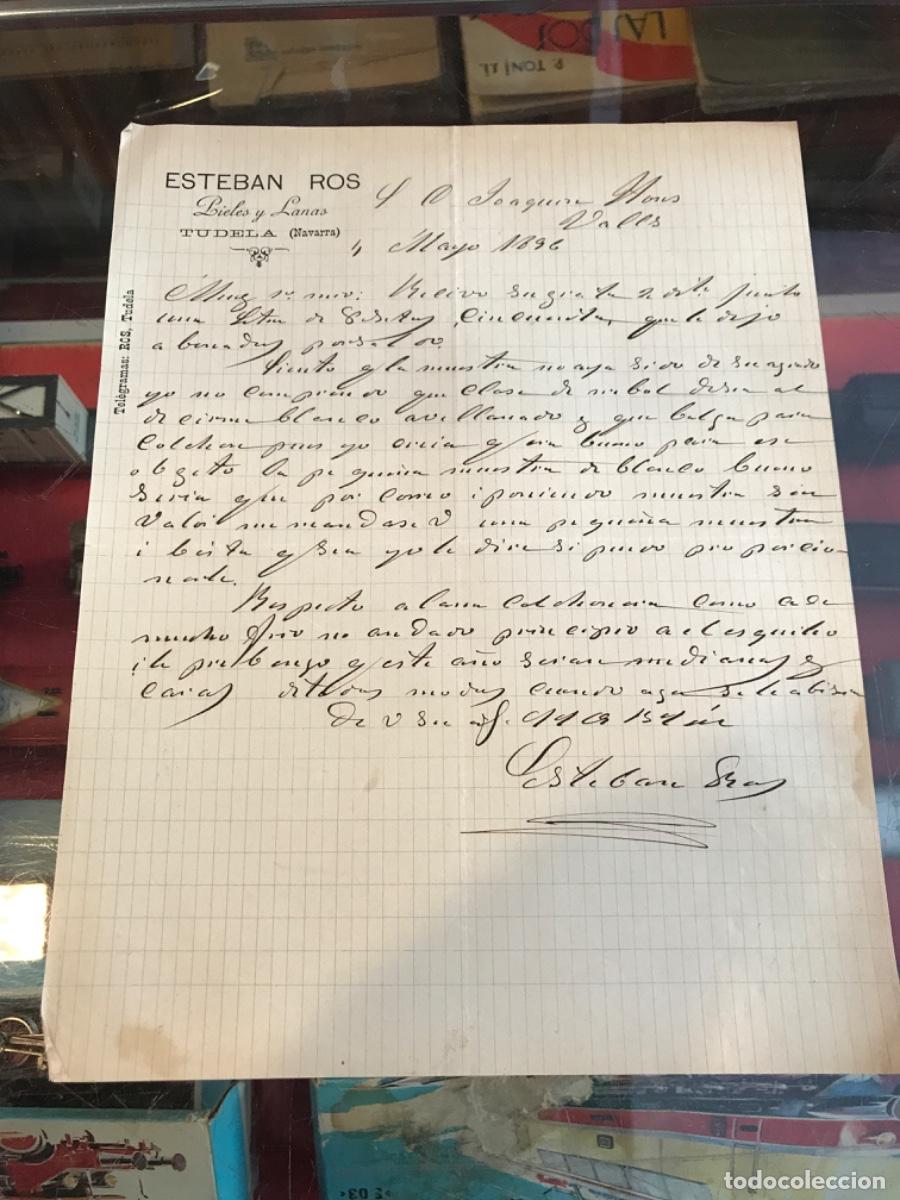 LAS DOS
P. TONI, II.
ESTEBAN ROS
Pieles y Lanas
TUDELA (Navarra)
Telégramas: ROS, Tudela
S D Joaquin
Valls
4 Mayo 1896
Muy Sr. mio: Recivo su grata 2 dit. junto
una Letra de Pesetas cincuenta, que le dejo
abonadas
Siento q la muestra no aya sido de su agrado
yo no comprendo que clase de desea al
decirme blanco avellanado y que balga para
Colchon pues yo creia q era bueno para ese
obgeto la pequeña muestra de blanco bueno
Seria que por correo i poniendo muestra sin
Valor me mandase V una pequeña muestra
i bista q sea yo le dire si puedo proporcio
narle.
Respecto a lana Colchonera como ace
mucho frio no an dado principio a el esquileo
i le prebengo q este año seran medianas y
caras de todos modos cuando aga se le abisara
de V su af. q q B S M
Esteban Ros
todocoleccion